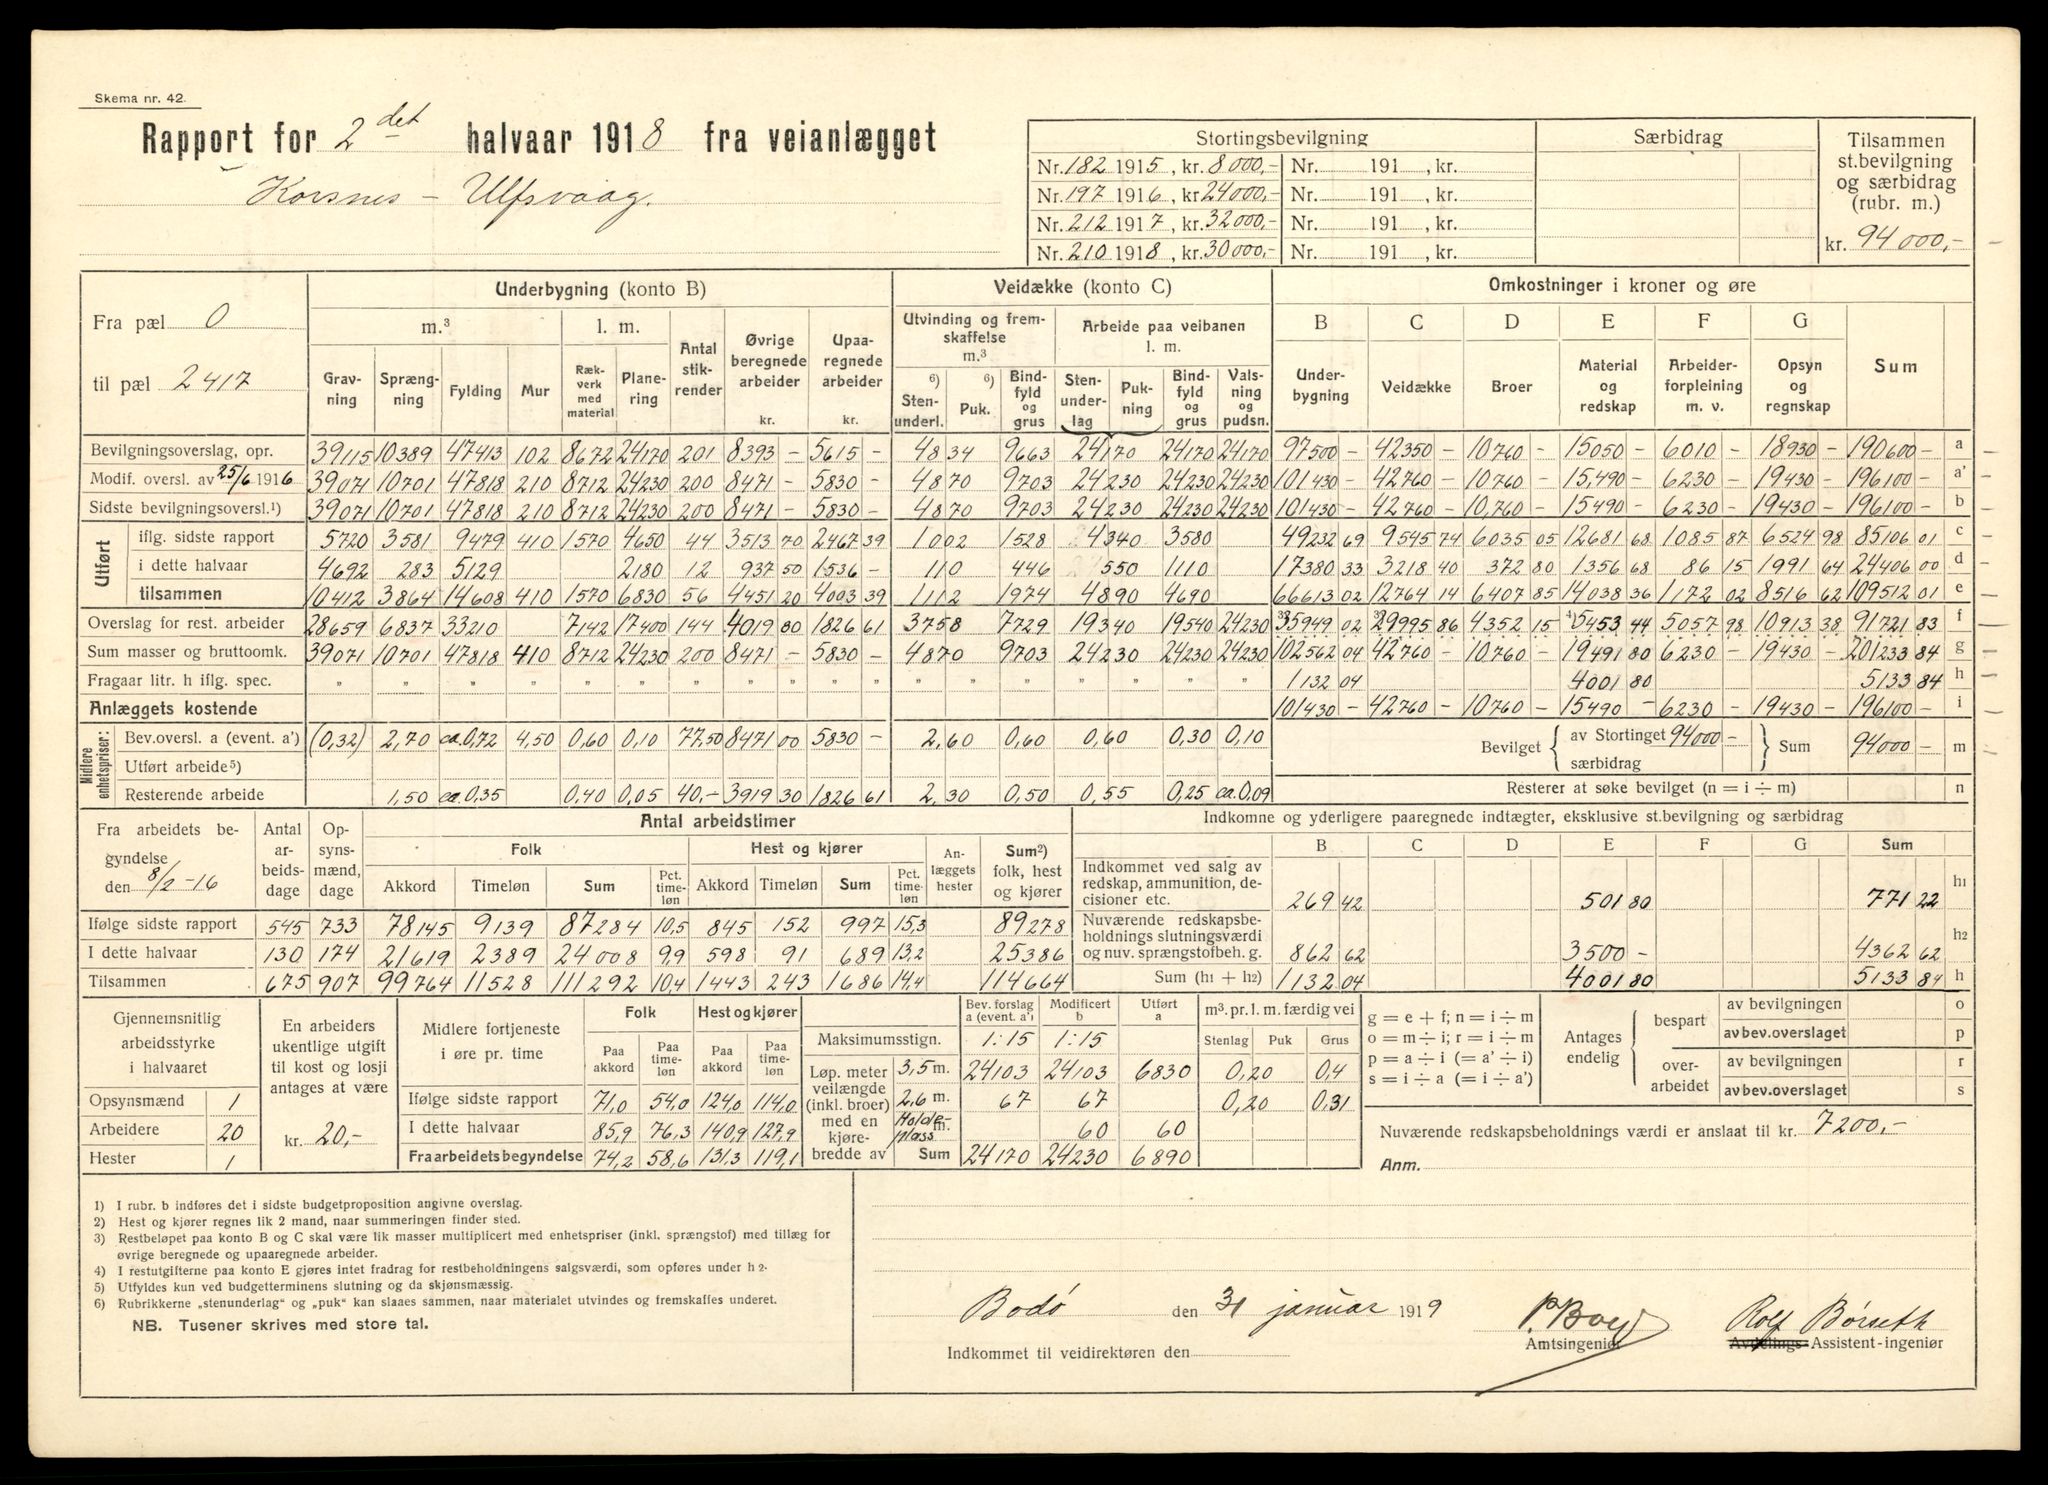 Skema nr. 42.
Rapport for 2det halvaar 1918 fra veianlægget
Korsnes – Ulfsvaag.
Stortingsbevilgning Særbidrag Tilsammen st.bevilgning og særbidrag (rubr. m.)
Nr. 182 1915, kr. 8000,- Nr. 191 , kr.
Nr. 197 1916, kr. 24000,- Nr. 191 , kr.
Nr. 212 1917, kr. 32000,- Nr. 191 , kr.
Nr. 210 1918, kr. 30000,- Nr. 191 , kr.
kr. 94000,-
Fra pæl 0
til pæl 2417
Underbygning (konto B) Veidække (konto C) Omkostninger i kroner og øre
m.³ l. m. Antal stikrender Øvrige beregnede arbeider kr. Upaaregnede arbeider kr.
Utvinding og fremskaffelse m.³ Arbeide paa veibanen l. m.
Gravning Sprængning Fylding Mur Rækverk med material Planering
6) Stenunderl. 6) Puk. Bindfyld og grus Stenunderlag Pukning Bindfyld og grus Valsning og pudsn.
B Underbygning C Veidække D Broer E Material og redskap F Arbeiderforpleining m. v. G Opsyn og regnskap Sum
Bevilgningsoverslag, opr. 39115 10389 47413 102 8672 24170 201 8393 – 5615 – 4834 9663 24170 24170 24170 97500 – 42350 – 10760 – 15050 – 6010 – 18930 – 190600 – a
Modif. oversl. av 25/6 1916 39071 10701 47818 210 8712 24230 200 8471 – 5830 – 4870 9703 24230 24230 24230 101430 – 42760 – 10760 – 15,490 – 6230 – 19430 – 196100 – a'
Sidste bevilgningsoversl.¹) 39071 10701 47818 210 8712 24230 200 8471 – 5830 – 4870 9703 24230 24230 24230 101430 – 42760 – 10,760 – 15490 – 6230 – 19430 – 196100 – b
Utført
iflg. sidste rapport 5720 3581 9479 410 1570 4650 44 3513 70 2467 39 1002 1528 4340 3580 49232 69 9545 74 6035 05 12681 68 1085 87 6524 98 85106 01 c
i dette halvaar 4692 283 5129 2180 12 937 50 1536 – 110 446 550 1110 17380 33 3218 40 372 80 1356 68 86 15 1991 64 24406 00 d
tilsammen 10412 3864 14608 410 1570 6830 56 4451 20 4003 39 1112 1974 4890 4690 66613 02 12764 14 6407 85 14038 36 1172 02 8516 62 109512 01 e
Overslag for rest. arbeider 28659 6837 33210 7142 17400 144 4019 80 1826 61 3758 7729 19340 19540 24230 35949 02 29995 86 4352 15 ⁴)5453 44 5057 98 10913 38 91721 83 f
Sum masser og bruttoomk. 39071 10701 47818 410 8712 24230 200 8471 – 5830 – 4870 9703 24230 24230 24230 102562 04 42760 – 10760 – 19491 80 6230 – 19430 – 201233 84 g
Fragaar litr. h iflg. spec. " " " " " " " " " " " " " " " " " 1132 04 4001 80 5133 84 h
Anlæggets kostende 101430 – 42760 – 10760 – 15490 – 6230 – 19430 – 196100 – i
Midlere enhetspriser:
Bev.oversl. a (event. a') (0,32) 2,70 ca.0,72 4,50 0,60 0,10 77,50 8471 00 5830 – 2,60 0,60 0,60 0,30 0,10
Utført arbeide⁵)
Resterende arbeide 1,50 ca.0,35 0,40 0,05 40,- 3919 30 1826 61 2,30 0,50 0,55 0,25 ca.0,09
Bevilget { av Stortinget 94000 – særbidrag } Sum 94000 – m
Resterer at søke bevilget (n = i ÷ m) n
Fra arbeidets begyndelse den 8/2-16
Antal arbeidsdage Opsynsmænd, dage Antal arbeidstimer
Folk Hest og kjører Anlæggets hester Sum²) folk, hest og kjører
Akkord Timeløn Sum Pct. timeløn Akkord Timeløn Sum Pct. timeløn
Ifølge sidste rapport 545 733 78145 9139 87284 10,5 845 152 997 15,3 89278
I dette halvaar 130 174 21619 2389 24008 9,9 598 91 689 13,2 25386
Tilsammen 675 907 99764 11528 111292 10,4 1443 243 1686 14,4 114664
Indkomne og yderligere paaregnede indtægter, eksklusive st.bevilgning og særbidrag
B C D E F G Sum
Indkommet ved salg av redskap, ammunition, decisioner etc. 269 42 501 80 771 22 h₁
Nuværende redskapsbeholdnings slutningsværdi og nuv. sprængstofbeh. g. 862 62 3500 – 4362 62 h₂
Sum (h₁ + h₂) 1132 04 4001 80 5133 84 h
Gjennemsnitlig arbeidsstyrke i halvaaret
Opsynsmænd 1
Arbeidere 20
Hester 1
En arbeiders ukentlige utgift til kost og losji antages at være kr. 20,-
Midlere fortjeneste i øre pr. time
Folk Hest og kjører
Paa akkord Paa timeløn Paa akkord Paa timeløn
Ifølge sidste rapport 71,0 54,0 124,0 114,0
I dette halvaar 85,9 76,3 140,9 127,9
Fra arbeidets begyndelse 74,2 58,6 131,3 119,1
Bev. forslag a (event. a') Modificert b Utført a
Maksimumsstign. 1:15 1:15
Løp. meter veilængde (inkl. broer) med en kjørebredde av
3,5 m. 24103 24103 6830
2,6 m. 67 67
Holdeplass m. 60 60
Sum 24170 24230 6890
m³. pr. l. m. færdig vei
Stenlag Puk Grus
0,20 0,4
0,20 0,31
g = e + f; n = i ÷ m
o = m ÷ i; r = i ÷ m
p = a ÷ i (= a' ÷ i)
s = i ÷ a (= i ÷ a')
Antages endelig
bespart av bevilgningen o
av bev.overslaget p
overarbeidet av bevilgningen r
av bev.overslaget s
Nuværende redskapsbeholdnings værdi er anslaat til kr. 7200,-
Anm.
1) I rubr. b indføres det i sidste budgetproposition angivne overslag.
2) Hest og kjører regnes lik 2 mand, naar summeringen finder sted.
3) Restbeløpet paa konto B og C skal være lik masser multiplicert med enhetspriser (inkl. sprængstof) med tillæg for
øvrige beregnede og upaaregnede arbeider.
4) I restutgifterne paa konto E gjøres intet fradrag for restbeholdningens salgsværdi, som opføres under h₂.
5) Utfyldes kun ved budgetterminens slutning og da skjønsmæssig.
6) Rubrikkerne „stenunderlag" og „puk" kan slaaes sammen, naar materialet utvindes og fremskaffes underet.
NB. Tusener skrives med store tal.
Bodø den 31 januar 1919
Rolf Børseth
Amtsingeniør Avdelings- Assistent-ingeniør
Indkommet til veidirektøren den